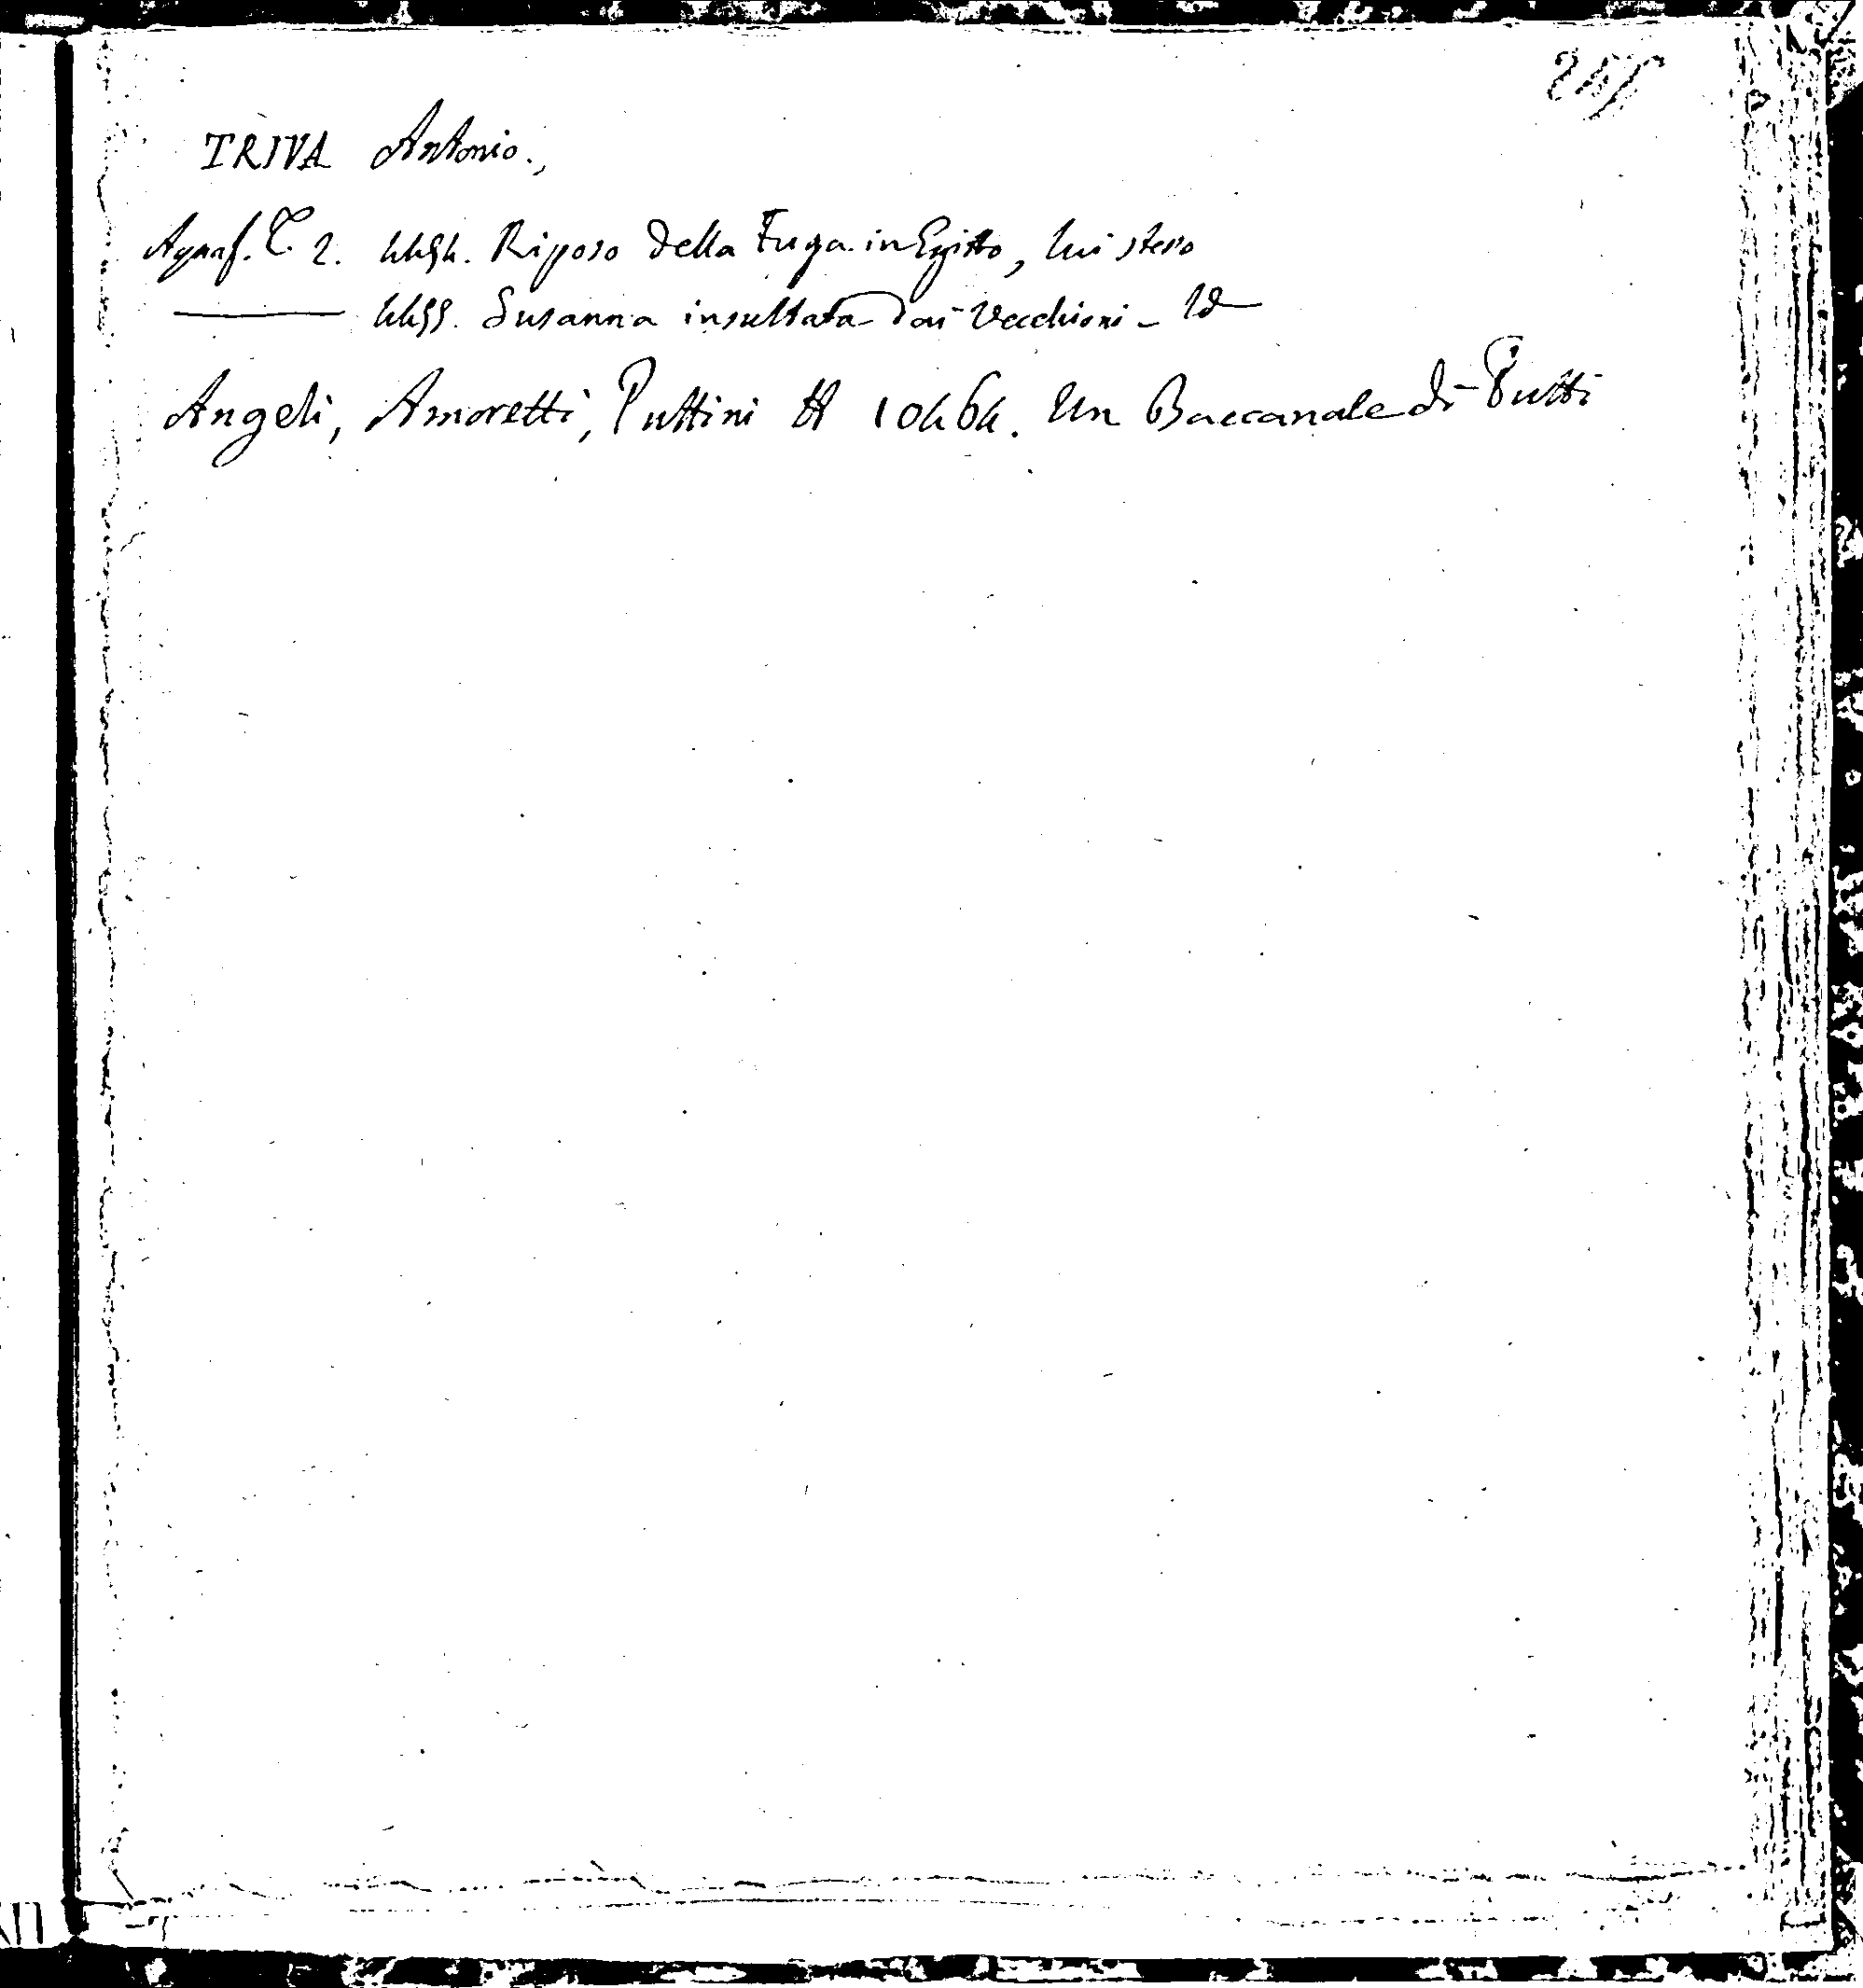 245
TRIVA Antonio.,
Aquaf. T. 2. 4454. Riposo della Fuga in Egitto, lui stesso
4455. Susanna insultata dai Vecchioni - Id
Angeli, Amoretti, Puttini H 10464. Un Baccanale di Putti